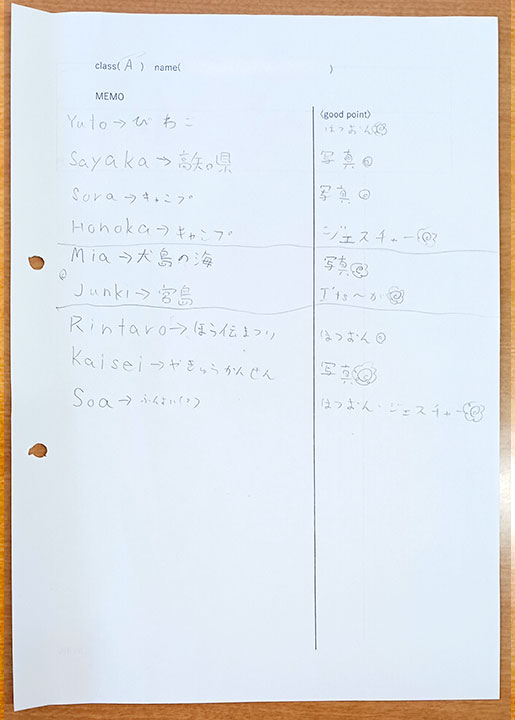 class( A ) name( )
MEMO 〈good point〉
Yuto→びわこ はつおん
Sayaka→高知県 写真
Sora→キャンプ 写真
Honoka→キャンプ ジェスチャー
Mia→犬島の海 写真
Junki→宮島 It's〜が
Rintaro→ほう伝まつり はつおん
Kaisei→やきゅうかんせん 写真
Soa→ はつおん・ジェスチャー